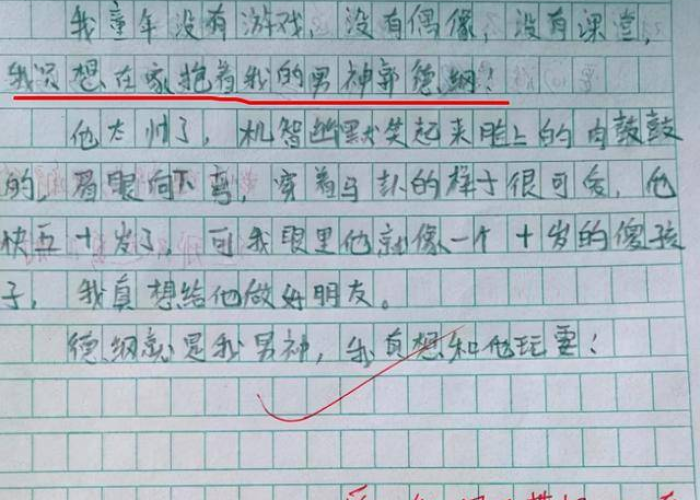 我童年没有游戏，没有偶像，没有课堂，
我只想在家抱着我的男神郭德纲！
他太帅了，机智幽默笑起来脸上的肉鼓鼓
的，眉眼向下弯，穿着马卦的样子很可爱，他
快五十岁了，可我眼里他就像一个十岁的傻孩
子，我真想给他做好朋友。
德纲就是我男神，我真想和他玩耍！